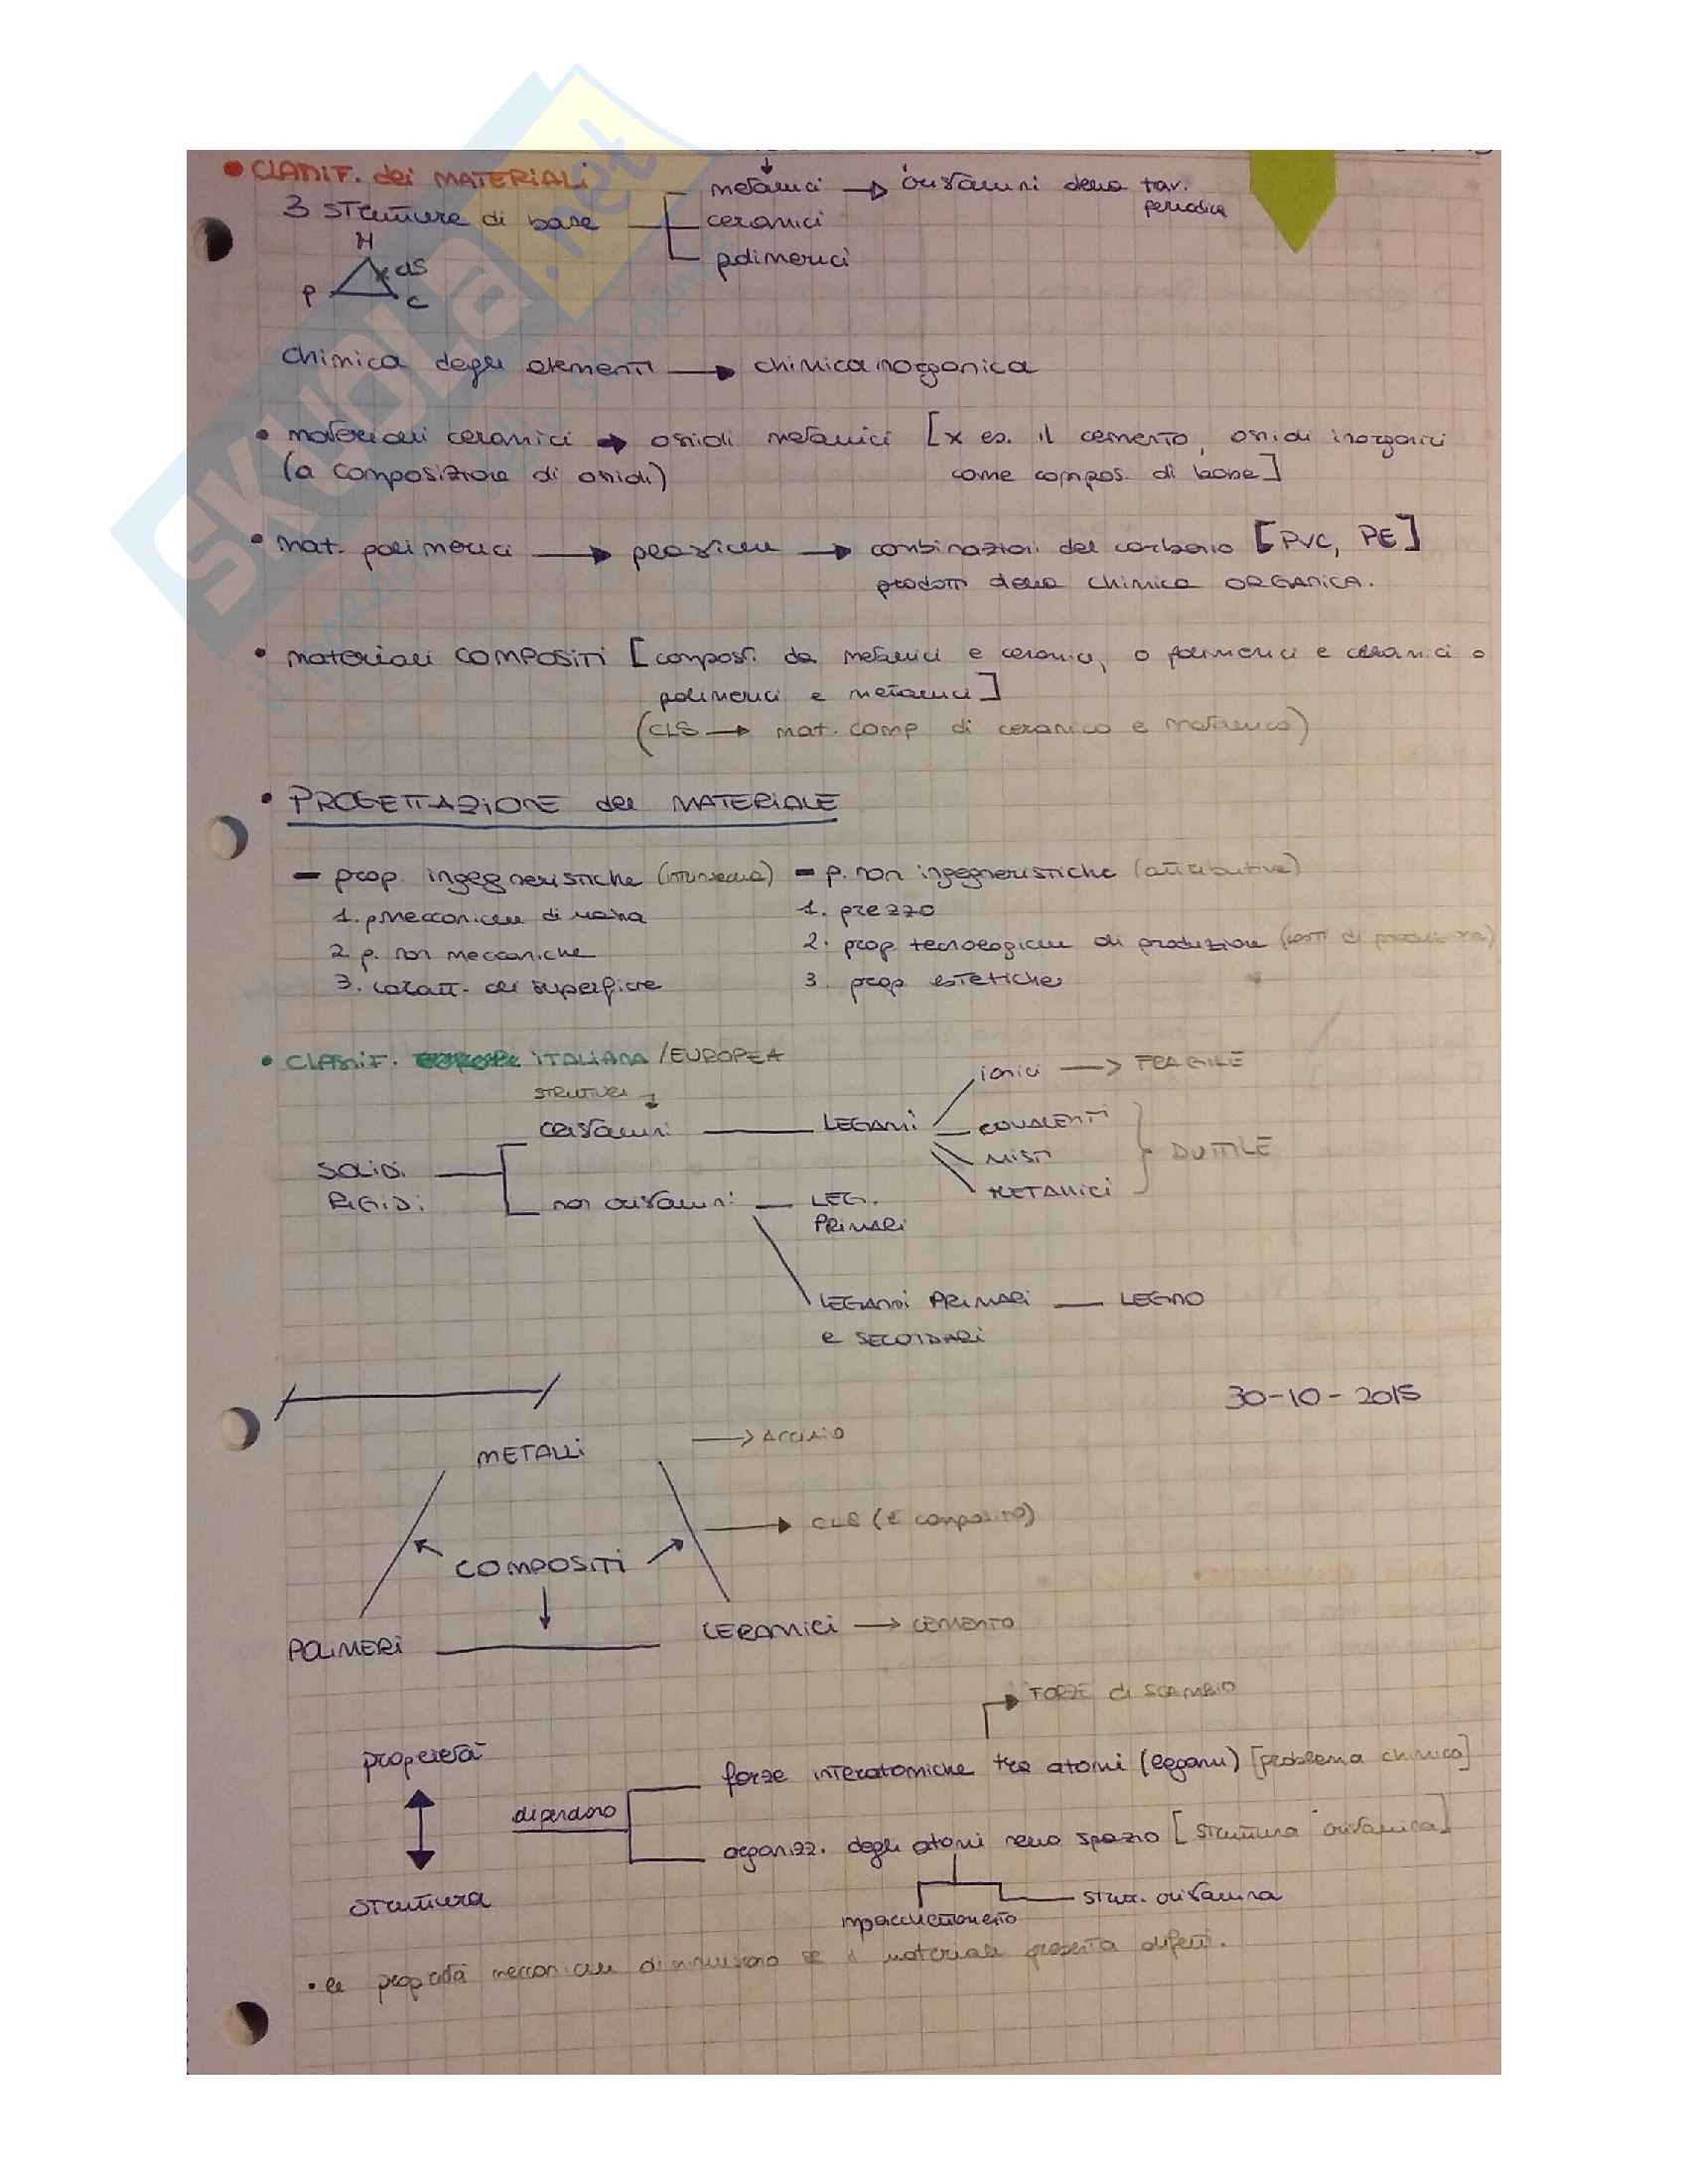 • CLASSIF. dei MATERIALI
3 strutture di base
metallici → cristallini della tav. periodica
ceramici
polimerici
M
CLS
P
C
chimica degli elementi → chimica inorganica
• materiali ceramici → ossidi metallici [x es. il cemento, ossidi inorganici
(a composizione di ossidi) come compos. di base]
• mat. polimerici → plastiche → combinazioni del carbonio [PVC, PE]
prodotti della chimica ORGANICA.
• materiali COMPOSITI [composti da metallici e ceramici, o polimerici e ceramici o
polimerici e metallici]
(CLS → mat. comp di ceramico e metallico)
• PROGETTAZIONE del MATERIALE
- prop. ingegneristiche (intrinseche) - p. non ingegneristiche (attributive)
1. p meccaniche di 1. prezzo
2 p. non meccaniche 2. prop tecnologiche di produzione (costi di produzione)
3. caratt. di superficie 3. prop. estetiche
• CLASSIF. ITALIANA/EUROPEA
STRUTTURA
ionici → FRAGILE
cristallini LEGAMI COVALENTI
MISTI DUTTILE
METALLICI
SOLIDI
RIGIDI
non cristallini LEG.
PRIMARI
LEGAMI PRIMARI LEGNO
e SECONDARI
30-10-2015
METALLI → ACCIAIO
→ CLS (è composito)
COMPOSITI
POLIMERI CERAMICI → CEMENTO
FORZE di SCAMBIO
proprietà
forze interatomiche tra atomi (legami) [problema chimico]
dipendono
organizz. degli atomi nello spazio [struttura cristallina]
struttura
strut. cristallina
impacchettamento
• le proprietà meccaniche diminuiscono se il materiale presenta difetti.
SKUOLA.net